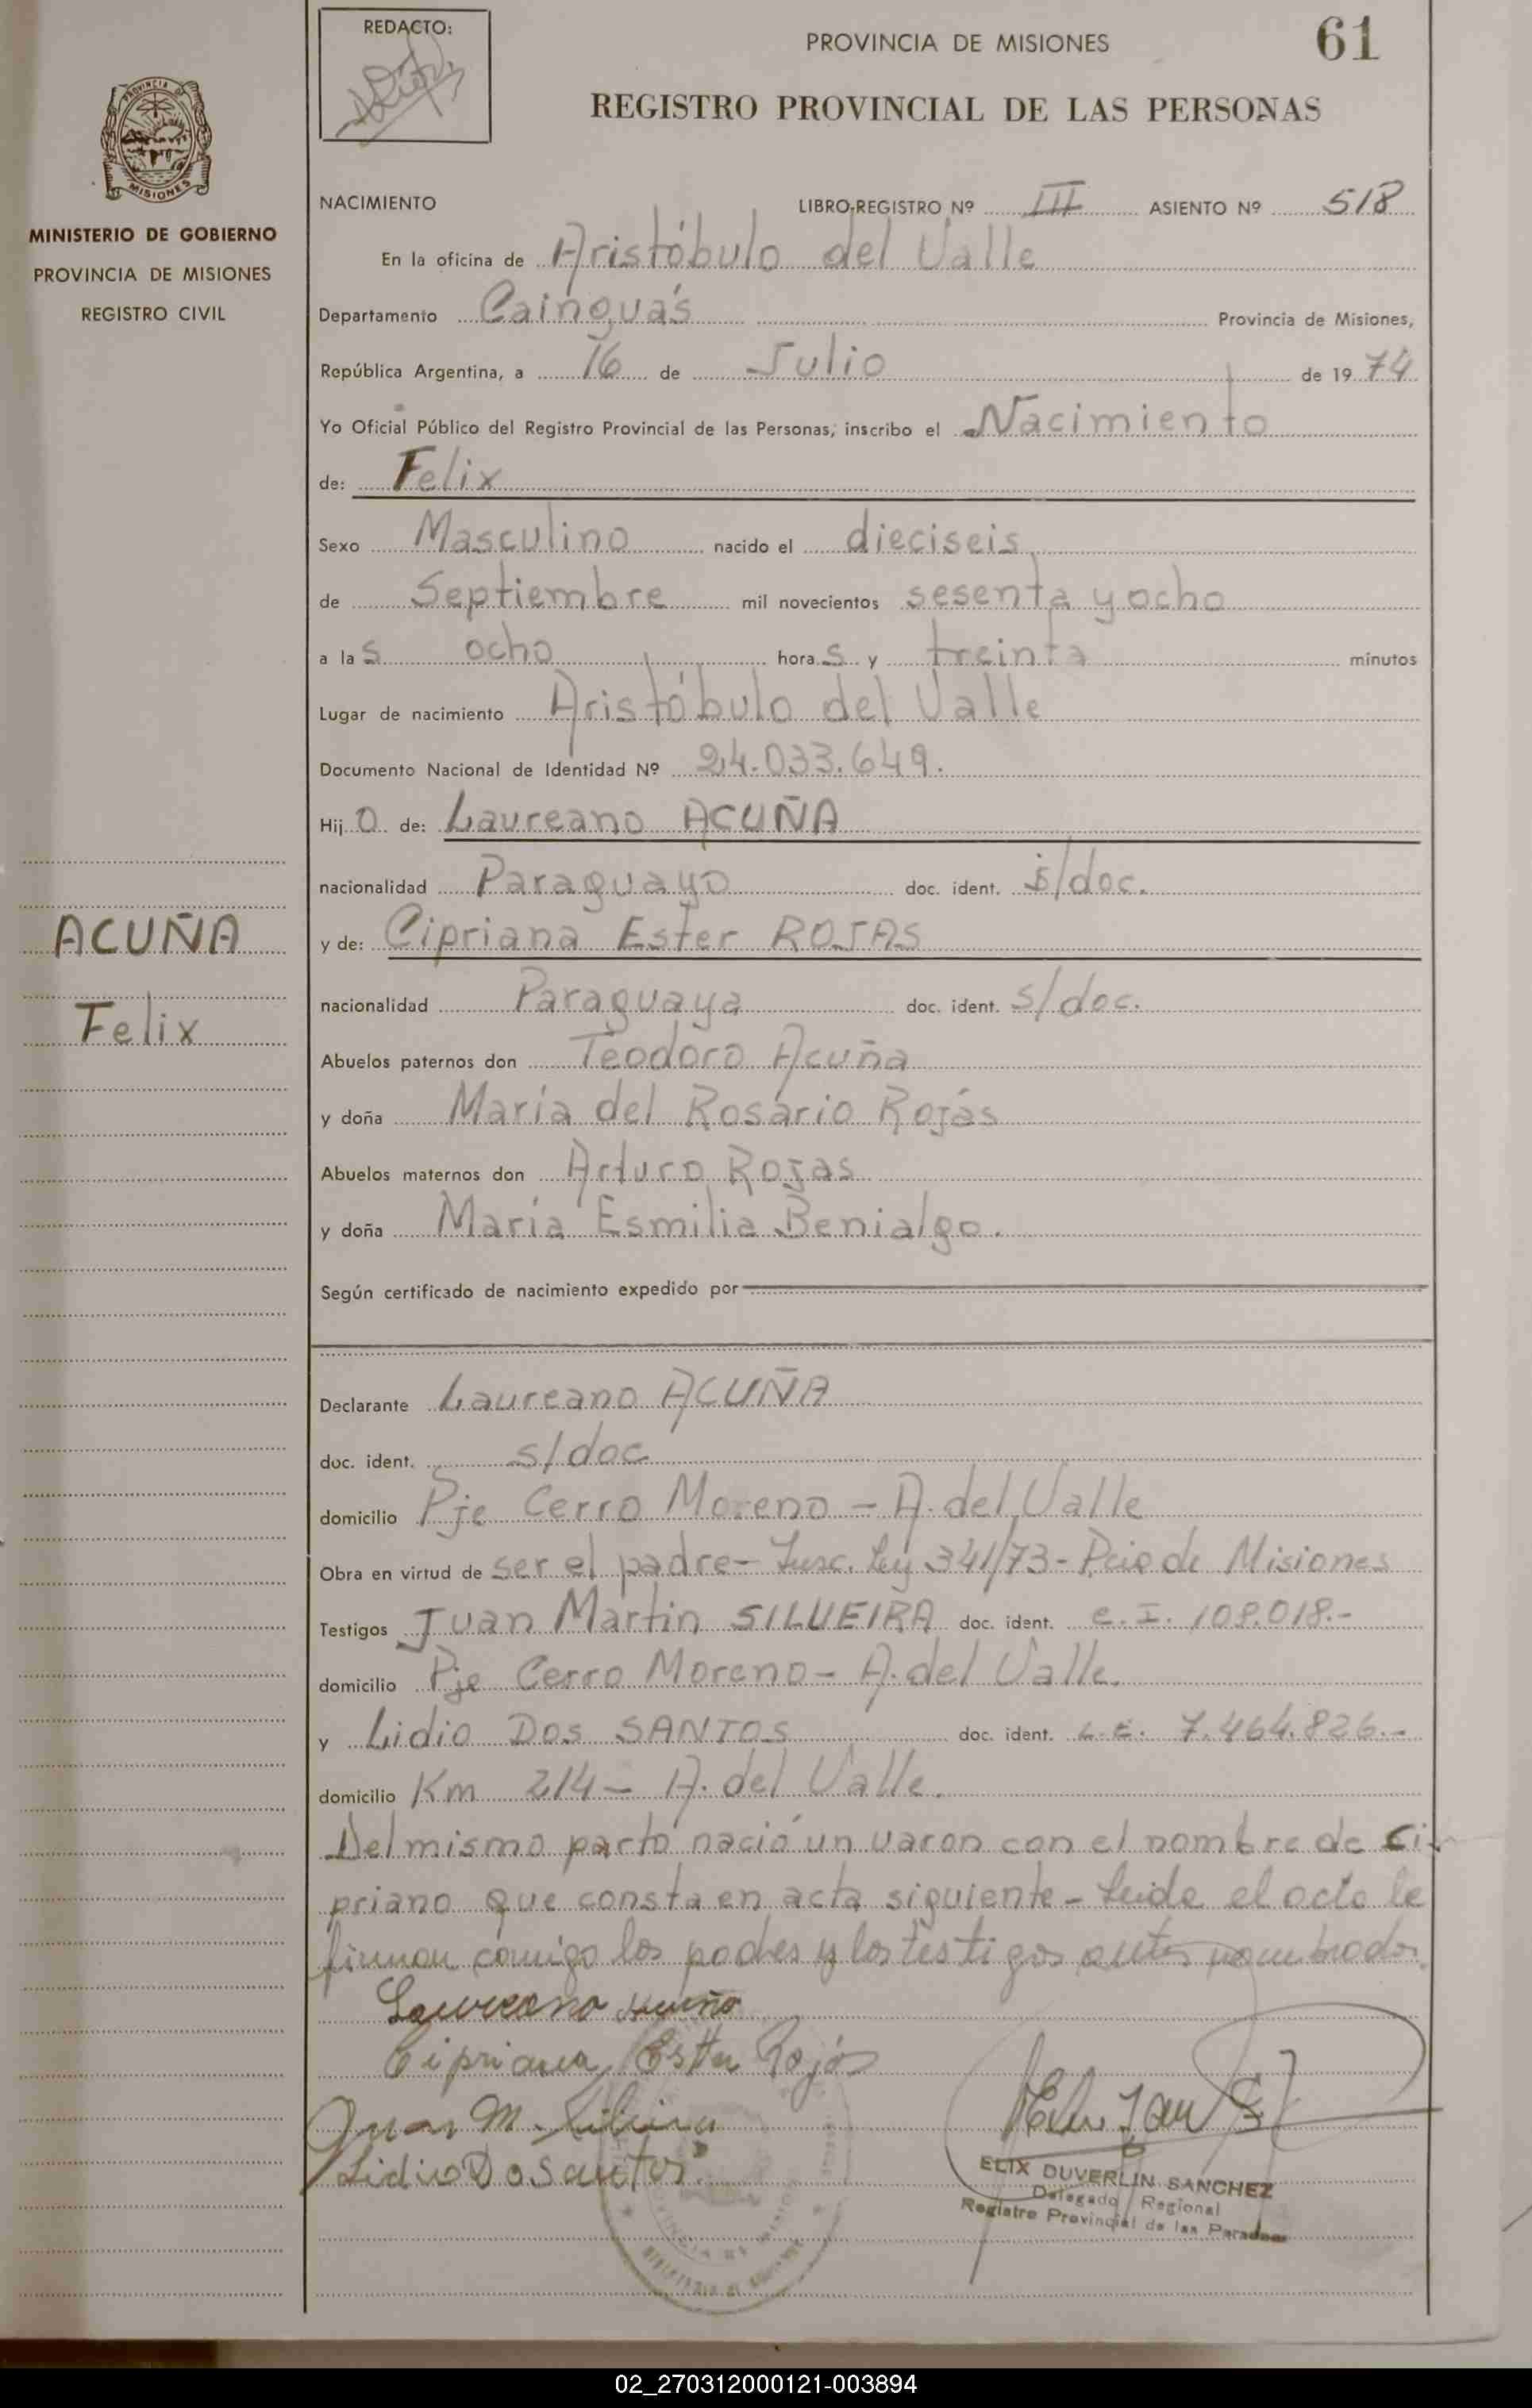 REDACTO:
PROVINCIA DE MISIONES
61
REGISTRO PROVINCIAL DE LAS PERSONAS
PROVINCIA DE
MISIONES
MINISTERIO DE GOBIERNO
PROVINCIA DE MISIONES
REGISTRO CIVIL
NACIMIENTO LIBRO-REGISTRO Nº III ASIENTO Nº 518
En la oficina de Aristóbulo del Valle
Departamento Cainguás Provincia de Misiones,
República Argentina, a 16 de Julio de 1974
Yo Oficial Público del Registro Provincial de las Personas, inscribo el Nacimiento
de: Felix
Sexo Masculino nacido el dieciseis
de Septiembre mil novecientos sesenta y ocho
a las ocho horas y treinta minutos
Lugar de nacimiento Aristóbulo del Valle
Documento Nacional de Identidad Nº 24.033.649.
Hijo de: Laureano ACUÑA
nacionalidad Paraguayo doc. ident. s/doc.
ACUÑA
y de: Cipriana Ester ROJAS
Felix
nacionalidad Paraguaya doc. ident. s/doc.
Abuelos paternos don Teodoro Acuña
y doña María del Rosario Rojás
Abuelos maternos don Arturo Rojas
y doña María Esmilia Benialgo.
Según certificado de nacimiento expedido por
Declarante Laureano ACUÑA
doc. ident. s/doc
domicilio Pje Cerro Moreno - A. del Valle
Obra en virtud de ser el padre - Insc. Ley 341/73 - Pcia de Misiones
Testigos Juan Martin SILVEIRA doc. ident. C. I. 108.018.-
domicilio Pje Cerro Moreno - A. del Valle.
y Lidio DOS SANTOS doc. ident. L.E. 7.464.826.-
domicilio Km 214 - A. del Valle.
Del mismo parto nació un varon con el nombre de Ci-
priano que consta en acta siguiente - Leida el acta le
firman comigo los padres y los testigos antes nombrados.
Laureano Acuña
Cipriana Ester Rojás
Juan M. Silveira
Lidio Do Santos
ELIX DUVERLIN SANCHEZ
Delegado Regional
Registro Provincial de las Personas
02_270312000121-003894